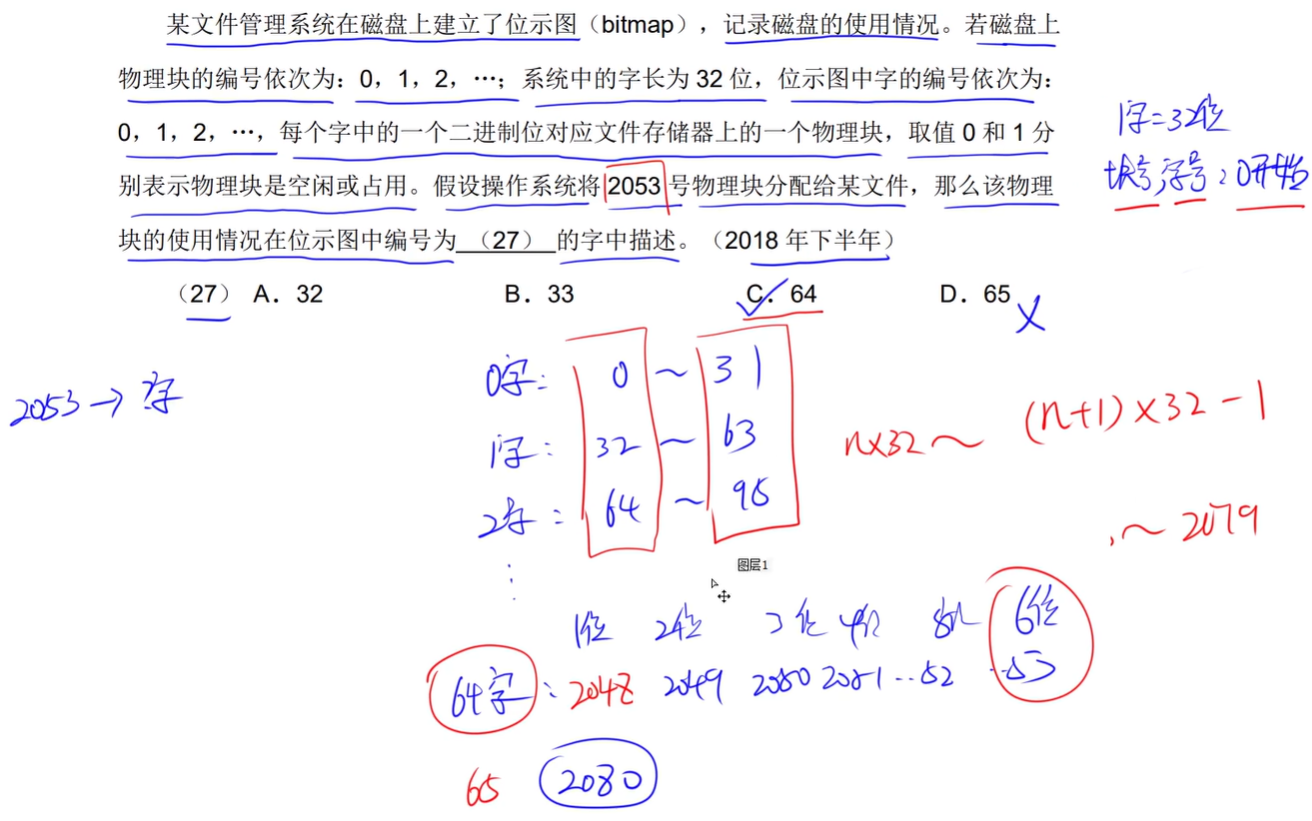 某文件管理系统在磁盘上建立了位示图（bitmap），记录磁盘的使用情况。若磁盘上
物理块的编号依次为：0，1，2，…；系统中的字长为 32 位，位示图中字的编号依次为：
0，1，2，…，每个字中的一个二进制位对应文件存储器上的一个物理块，取值 0 和 1 分
别表示物理块是空闲或占用。假设操作系统将 2053 号物理块分配给某文件，那么该物理
块的使用情况在位示图中编号为 （27） 的字中描述。（2018 年下半年）
1字=32位
块号,字号：0开始
（27） A．32 B．33 C．64 D．65
2053→ ?字
0字: 0 ~ 31
1字: 32 ~ 63
2字: 64 ~ 95
⋮
n×32 ~ (n+1)×32-1
~ 2079
图层1
1位 2位 3位 4位 6位
64字: 2048 2049 2050 2051 ··52 ··53
65 2080